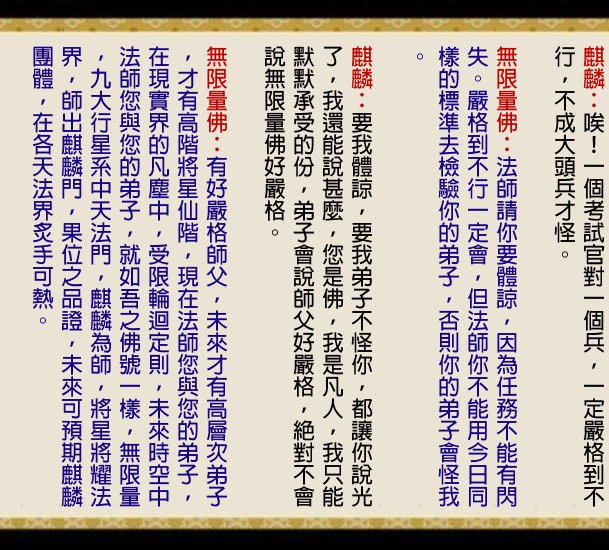 麒麟：唉！一個考試官對一個兵，一定嚴格到不
行，不成大頭兵才怪。
無限量佛：法師請你要體諒，因為任務不能有閃
失。嚴格到不行一定會，但法師你不能用今日同
樣的標準去檢驗你的弟子，否則你的弟子會怪我
。
麒麟：要我體諒，要我弟子不怪你，都讓你說光
了，我還能說甚麼，您是佛，我是凡人，我只能
默默承受的份，弟子會說師父好嚴格，絕對不會
說無限量佛好嚴格。
無限量佛：有好嚴格師父，未來才有高層次弟子
，才有高階將星仙階，現在法師您與您的弟子，
在現實界的凡塵中，受限輪迴定則，未來時空中
法師您與您的弟子，就如吾之佛號一樣，無限量
，九大行星系中天法門，麒麟為師，將星將耀法
界，師出麒麟門，果位之品證，未來可預期麒麟
團體，在各天法界炙手可熱。